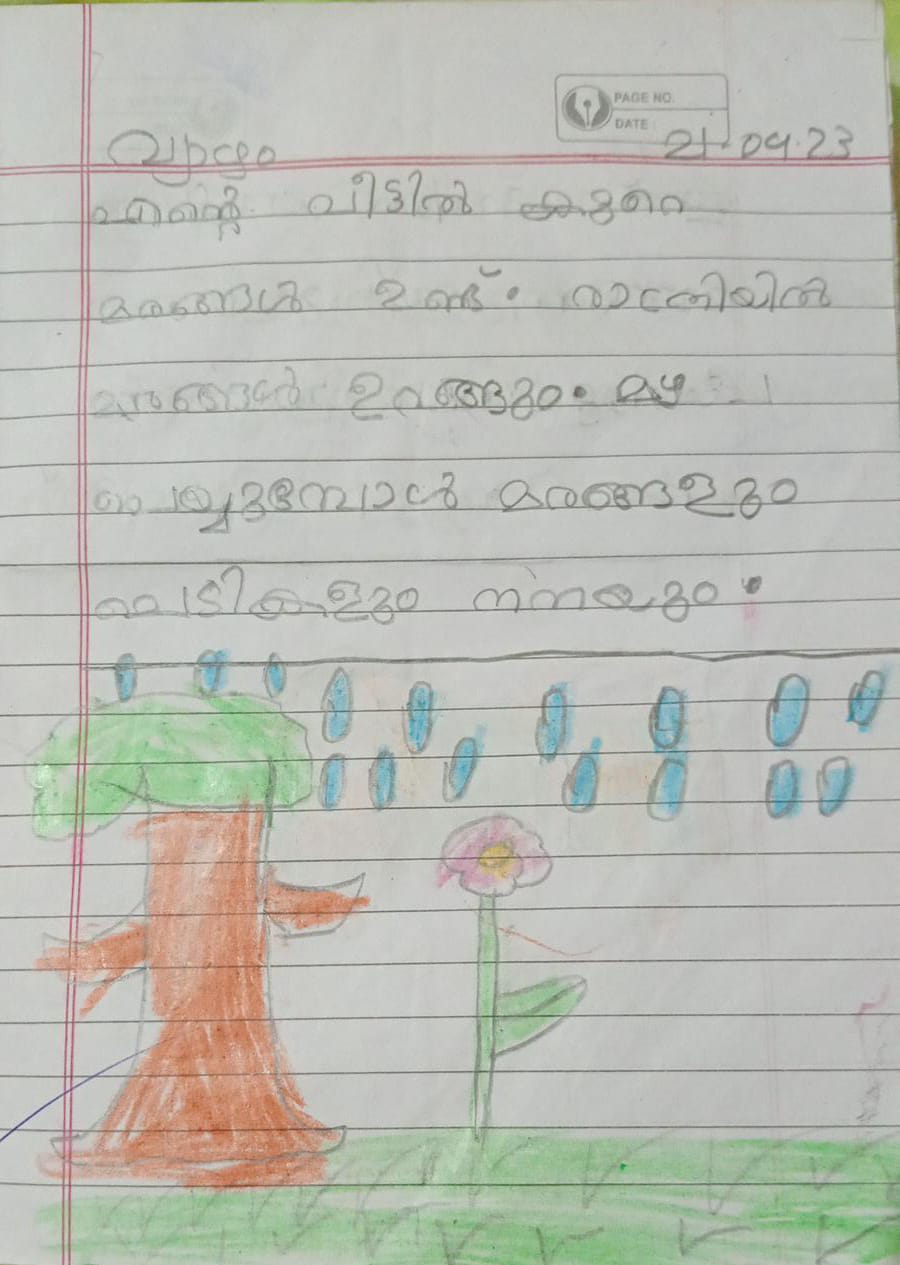 PAGE NO.
DATE :
വ്യാഴം 21.09.23
എന്റെ വീട്ടിൽ കുറെ
മരങ്ങൾ ഉണ്ട്. രാത്രിയിൽ
മരങ്ങൾ ഉറങ്ങും. മഴ
പെയ്യുമ്പോൾ മരങ്ങളും
ചെടികളും നനയും.